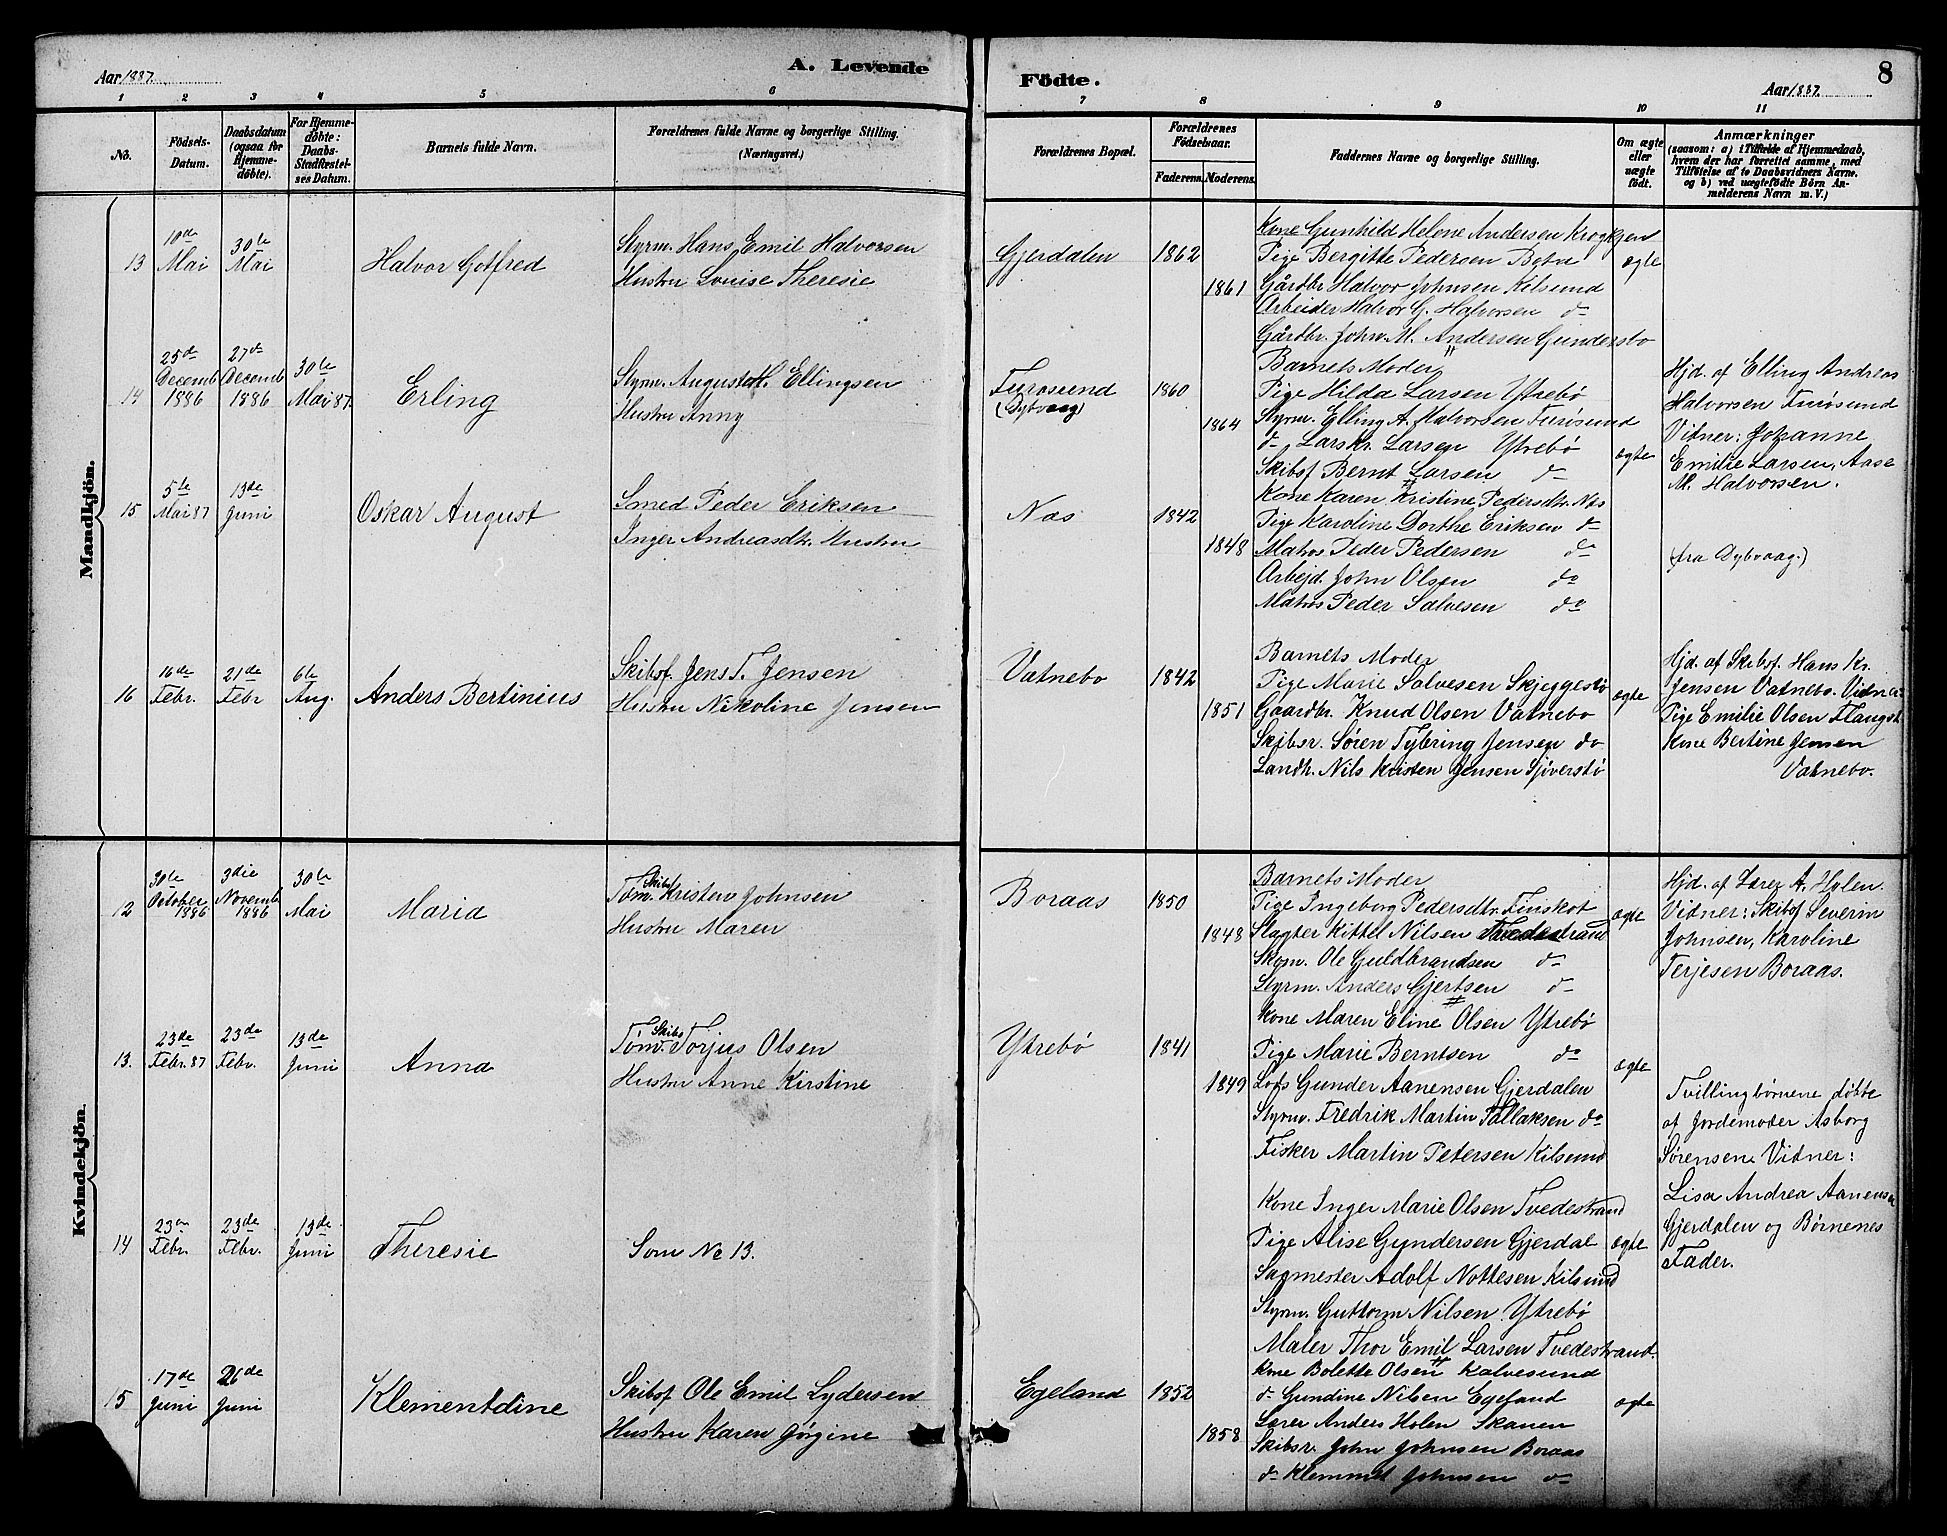 Aar 1887.
A. Levende
Födte.
Aar 1887.
8
1 2 3 4 5 6 7 8 9 10 11
No.
Födsels-
Datum.
Daabsdatum
(ogsaa for
Hjemme-
døbte).
For Hjemme-
døbte:
Daabs-
Stadfæstel-
ses Datum.
Barnets fulde Navn.
Forældrenes fulde Navne og borgerlige Stilling.
(Næringsvei.)
Forældrenes Bopæl.
Forældrenes
Födselsaar.
Faderens.
Moderens.
Faddernes Navne og borgerlige Stilling.
Om ægte
eller
uægte
født.
Anmærkninger
(saasom: a) i Tilfælde af Hjemmedaab,
hvem der har forrettet samme, med
Tilføielse af to Daabsvidners Navne.
og b) ved uægtefödte Börn An-
melderens Navn m. V.)
Mandkjön.
13
10de
Mai
30te
Mai
Halvor Gotfred
Styrm. Hans Emil Halvorsen
Hustru Louise Theresie
Gjerdalen
1862
1861
Kone Gunhild Helene Andersen Krogkjen
Pige Bergitte Pedersen Botne
Gårdbr. Halvor Johnsen Kilsund
Arbeider Halvor G. Halvorsen do
Gårdbr. John M. Andersen Gundersbo
ægte
14
25de
Decemb
1886
27de
Decemb
1886
30te
Mai 87.
Erling
Styrm. August H. Ellingsen
Hustru Anny
Furøsund
(Dybvaag)
1860
1864
Barnets Moder
Pige Hilda Larsen Ytrebö
Styrm. Elling A. Halvorsen Furøsund
do Lars Kr. Larsen Ytrebö
Skibsf Bernt Larsen do
ægte
Hjd. af Elling Andreas
Halvorsen Furösund
Vidner: Johanne
Emilie Larsen, Aase
M. Halvorsen.
15
5te
Mai 87
13de
Juni
Oskar August
Smed Peder Eriksen
Inger Andreasdtr. Hustru
Næs
1842
1848
Kone Karen Kristine Pedersdtr. Næs
Pige Karoline Dorthe Eriksen do
Matros Peder Pedersen do
Arbejd. John Olsen do
Matros Peder Salvesen do
(fra Dybvaag.)
16
16de
Febr.
21de
Febr
6te
Aug.
Anders Bertinius
Skibsf. Jens T. Jensen
Hustru Nikoline Jensen
Vatnebo
1842
1851
Barnets Moder
Pige Marie Salvesen Skjeggestø
Gaardbr. Knud Olsen Vatnebo
Skibsr. Søren Tybring Jensen do
Landh. Nils Kristen Jensen Sjöverstö
ægte
Hjd. af Skibsf. Hans Kr.
Jensen Vatnebo. Vidner
Pige Emilie Olsen
Kone Bertine Jensen
Vatnebo.
Kvindekjön.
12
30te
October
1886
3die
Novemb
1886
30te
Mai
Maria
Skibs
Töm. Kristen Johnsen
Hustru Maren
Boraas
1850
1848
Barnets Moder
Pige Ingeborg Pedersdtr. Finskot
Slagter Kittel Nilsen Tvedestrand
Skom. Ole Guldbrandsen do
Styrm. Anders Gjertsen do
ægte
Hjd. af Lærer A. Holen.
Vidner: Skibsf Severin
Johnsen, Karoline
Terjesen Boraas.
13.
23de
Febr. 87
23de
Febr.
13de
Juni
Anna
Skibs
Töm. Torjus Olsen
Hustru Anne Kirstine
Ytrebö
1841
1849
Kone Maren Eline Olsen Ytrebö
Pige Marie Berntsen do
Lods Gunder Aanensen Gjerdalen
Styrm. Fredrik Martin Tallaksen do
Fisker Martin Petersen Kilsund
ægte
Tvillingbørnene døbte
af Jordemoder Asborg
Sørensen. Vidner:
Lisa Andrea Aanensen
Gjerdalen og Børnenes
Fader.
14
23de
Febr.
23de
Febr.
13de
Juni
Theresie
Som No 13.
Kone Inger Marie Olsen Tvedestrand
Pige Alise Gundersen Gjerdal
Sagmester Adolf Nottesen Kilsund
Styrm. Guttorm Nilsen Ytrebö
Maler Thor Emil Larsen Tvedestrand.
ægte
15
17de
Juni
26de
Juni
Klementdine
Skibsf Ole Emil Lydersen
Hustru Karen Jørgine
Egeland
1852
1858
Kone Bolette Olsen Kalvesund
do Gundine Nilsen Egeland
Lærer Anders Holen Skanen
Skibsr. John Johnsen Boraas
do Klemmet Johnsen do
ægte